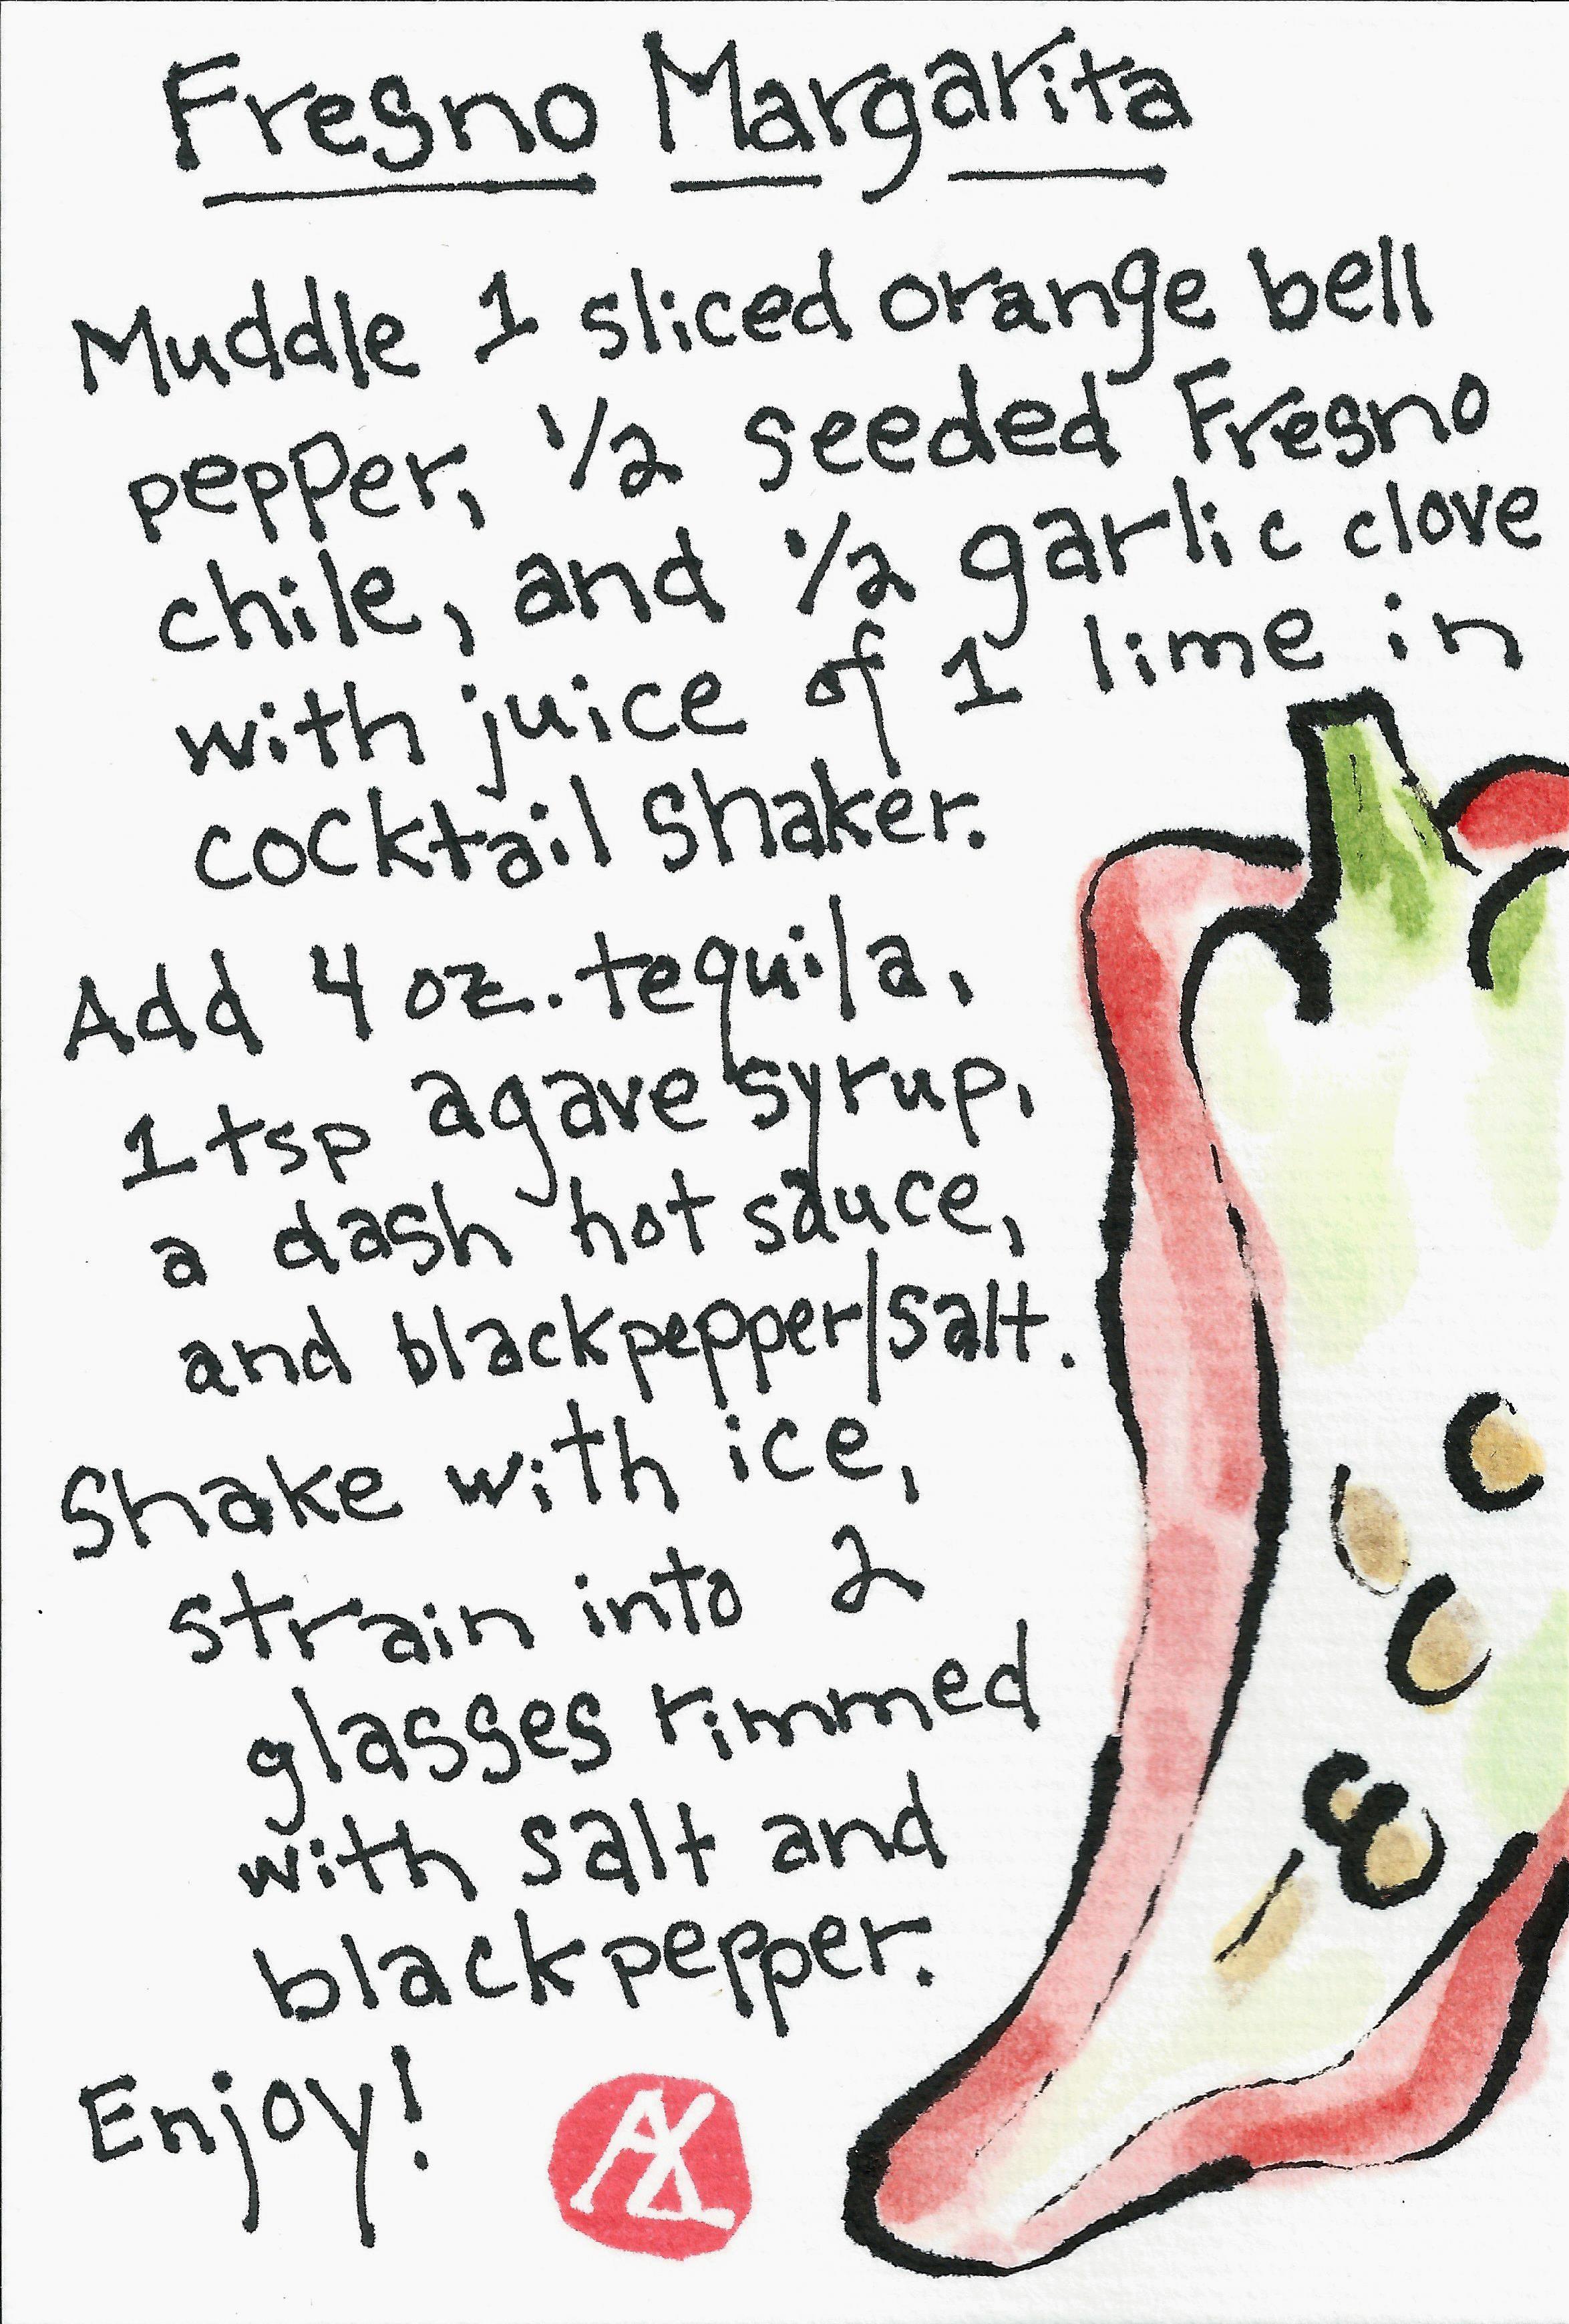 Fresno Margarita
Muddle 1 sliced orange bell
pepper, 1/2 seeded Fresno
chile, and 1/2 garlic clove
with juice of 1 lime in
cocktail shaker.
Add 4 oz. tequila,
1 tsp agave syrup,
a dash hot sauce,
and black pepper/salt.
Shake with ice,
strain into 2
glasses rimmed
with salt and
black pepper.
Enjoy!